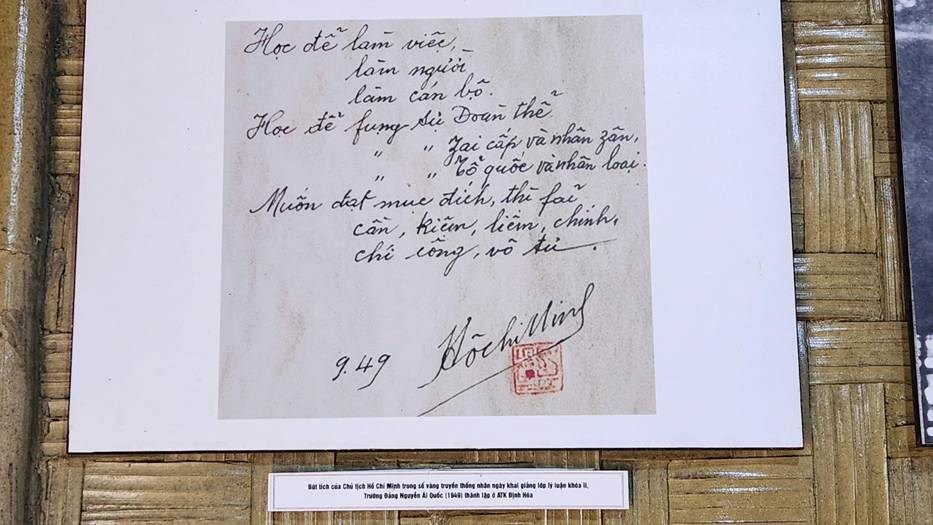 Học để làm việc,
làm người
làm cán bộ.
Học để fụng sự Đoàn thể
" " Zai cấp và nhân zân,
" " Tổ quốc và nhân loại.
Muốn đạt mục đích, thì fải
cần, kiệm, liêm, chính,
chí công, vô tư.
9.49 Hồ Chí Minh
Bút tích của Chủ tịch Hồ Chí Minh trong sổ vàng truyền thống nhân ngày khai giảng lớp lý luận khóa II,
Trường Đảng Nguyễn Ái Quốc (1949) thành lập ở ATK Định Hóa